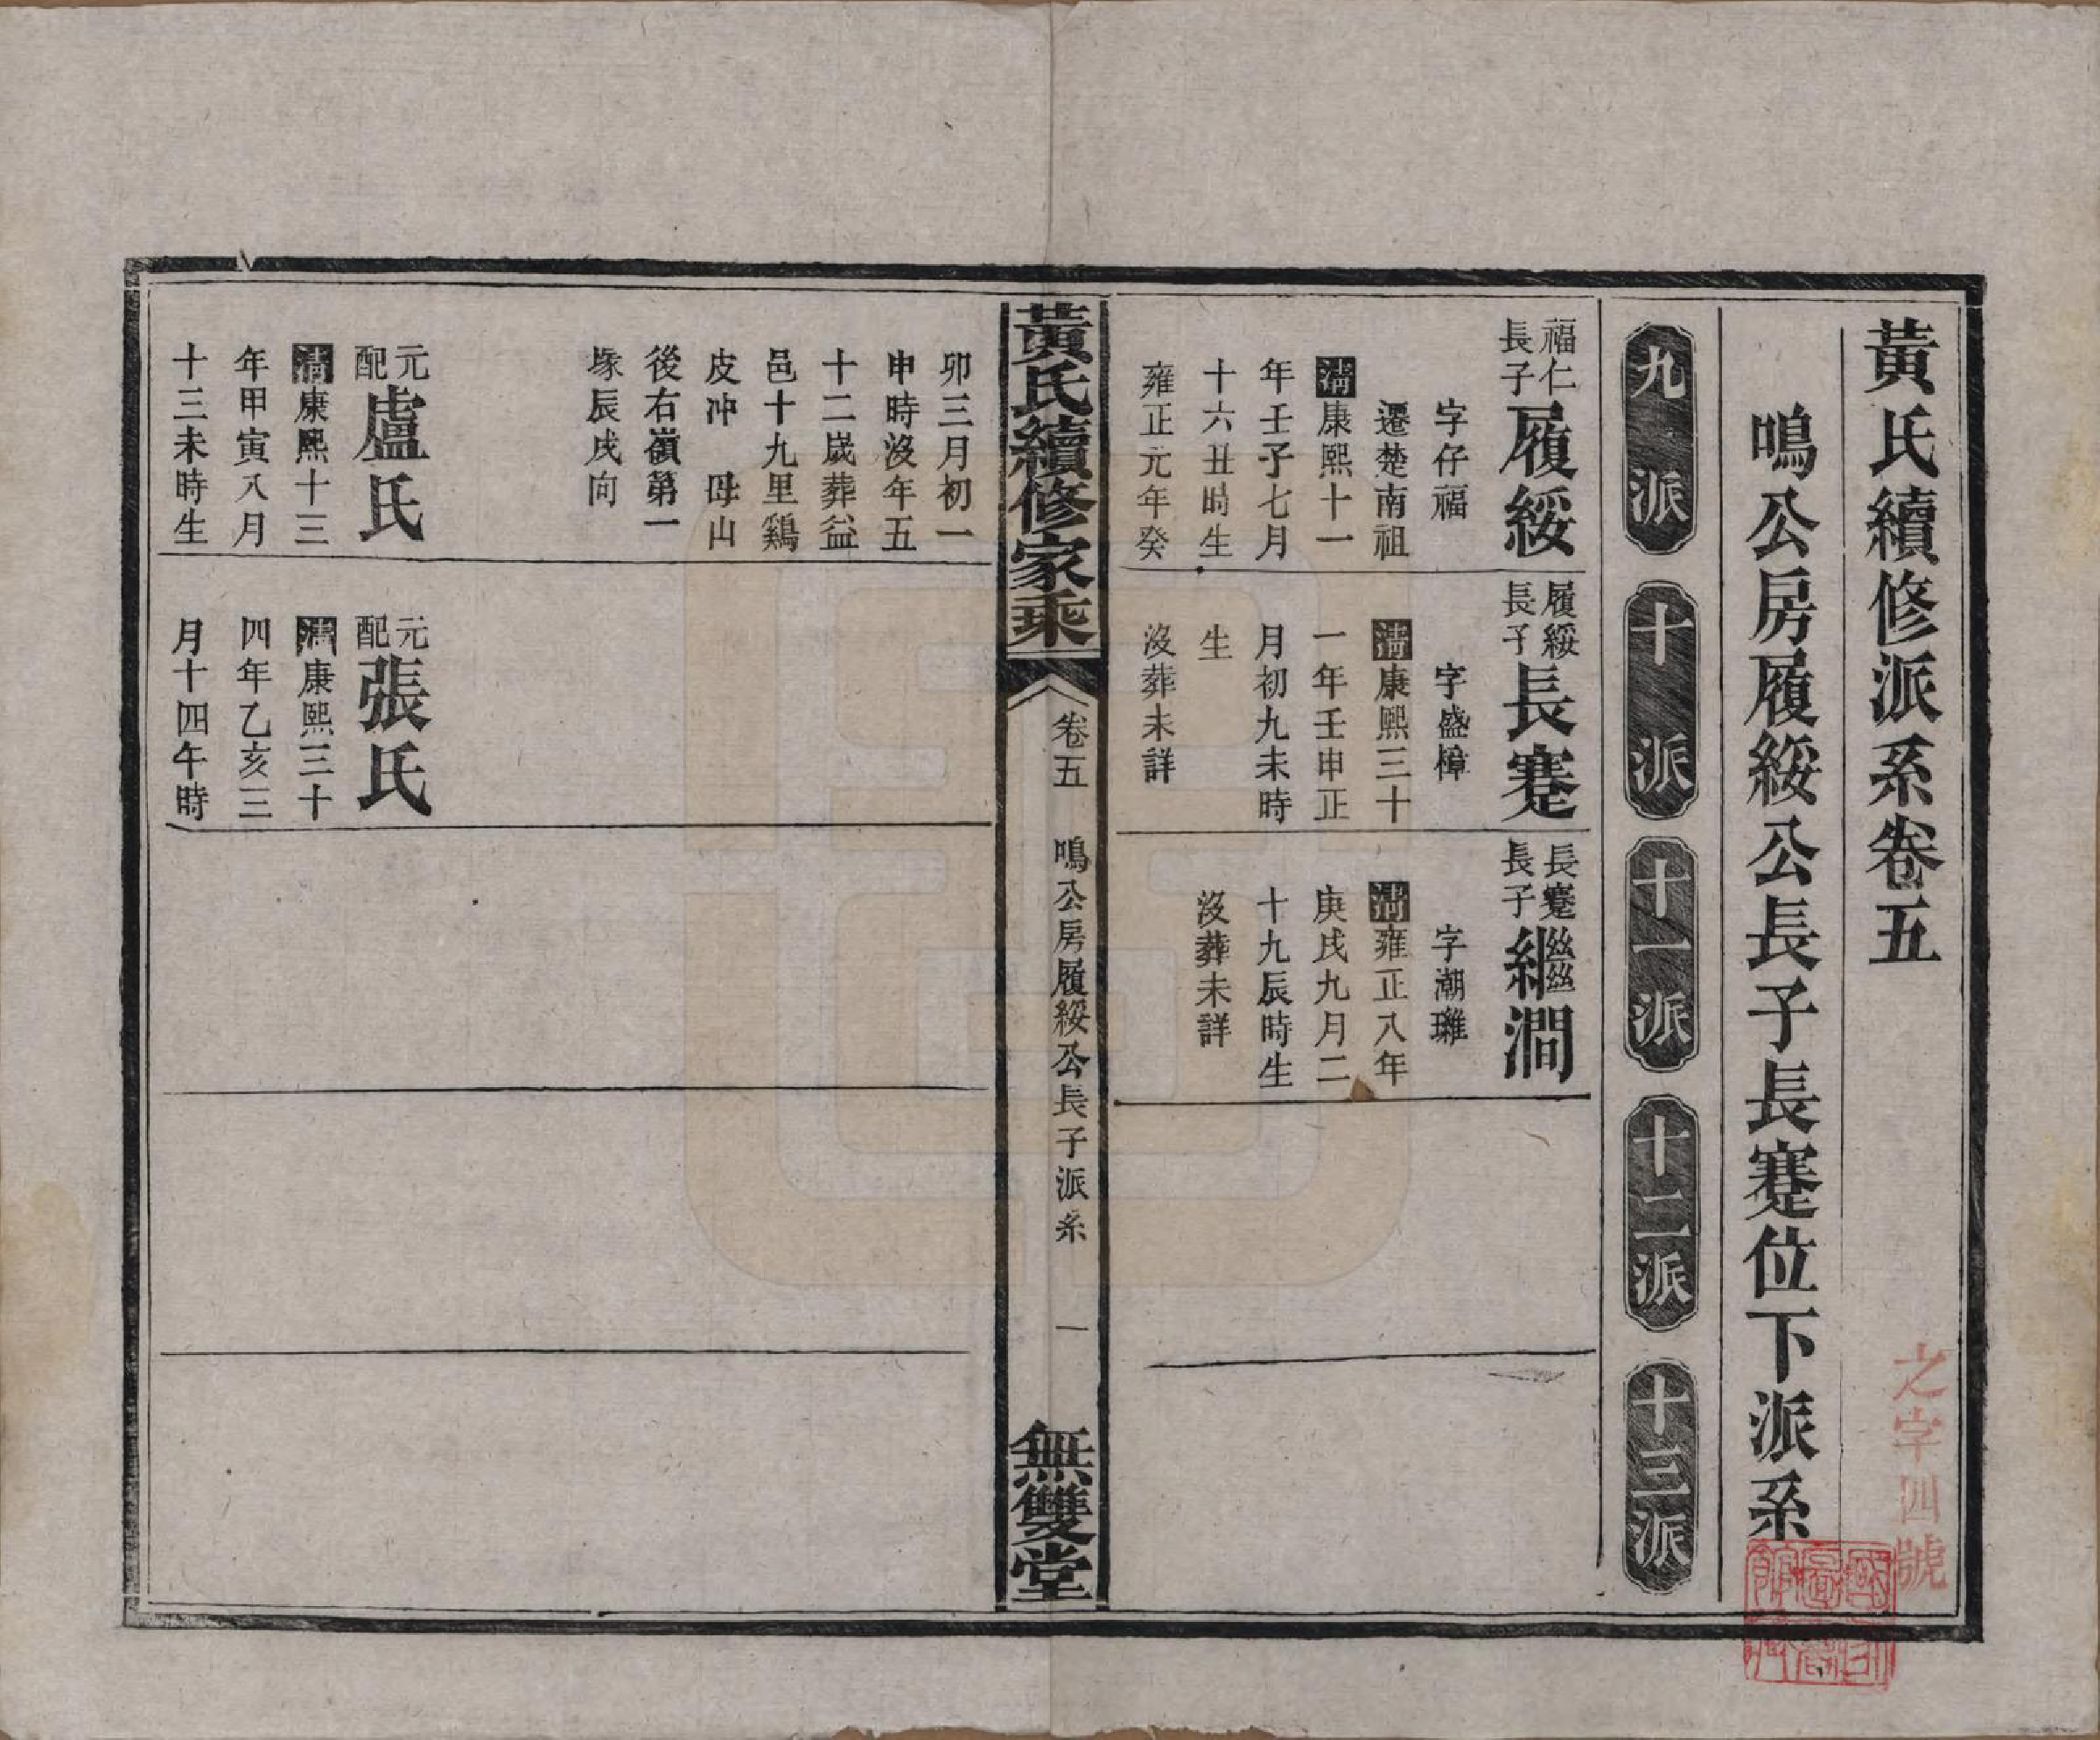 黃氏續修派系卷五
鳴公房履綏公長子長蹇位下派系
之字四號
九派
十派
十一派
十二派
十三派
福仁長子履綏
字仔福
遷楚南祖
清康熙十一
年壬子七月
十六丑時生
雍正元年癸
履綏長子長蹇
字盛樟
清康熙三十
一年壬申正
月初九未時
生
沒葬未詳
長蹇長子繼澗
字潮
清雍正八年
庚戌九月二
十九辰時生
沒葬未詳
黃氏續修家乘
卷五 鳴公房履綏公長子派系 一
無雙堂
卯三月初一
申時沒年五
十二歲葬益
邑十九里鷄
皮冲 毋山
後右嶺第一
塚辰戌向
元配盧氏
清康熙十三
年甲寅八月
十三未時生
元配張氏
清康熙三十
四年乙亥三
月十四午時